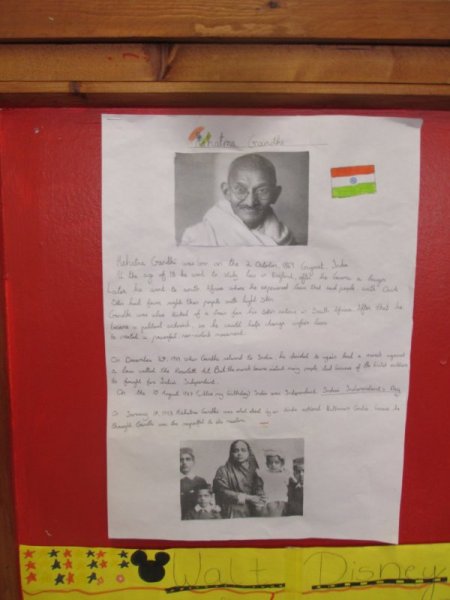 Mahatma Gandhi
Mahatma Gandhi was born on the 2 October 1869 Gujarat, India
At the age of 18 he went to study law in England, after he became a lawyer
Later he went to South Africa where he experienced laws that said people with dark
skin had fewer rights than people with light skin.
Gandhi was also kicked of a train for his skin colour in South Africa. After that he
became a political activist, so he could help change unfair laws
he created a peaceful non-violent movement.
On December 20th, 1919 when Gandhi returned to India he decided to again lead a march against
a law called the Rowlatt Act. But the march became violent many people died because of the British soldiers
he fought for India's Independent.
On the 15 August 1947 (also my birthday) India was Independent. India's Independent's Day
On January 1948 Mahatma Gandhi was shot dead by an Hindu nationalist Nathuram Godse because he
thought Gandhi was too respectful to the muslims.
Walt Disney